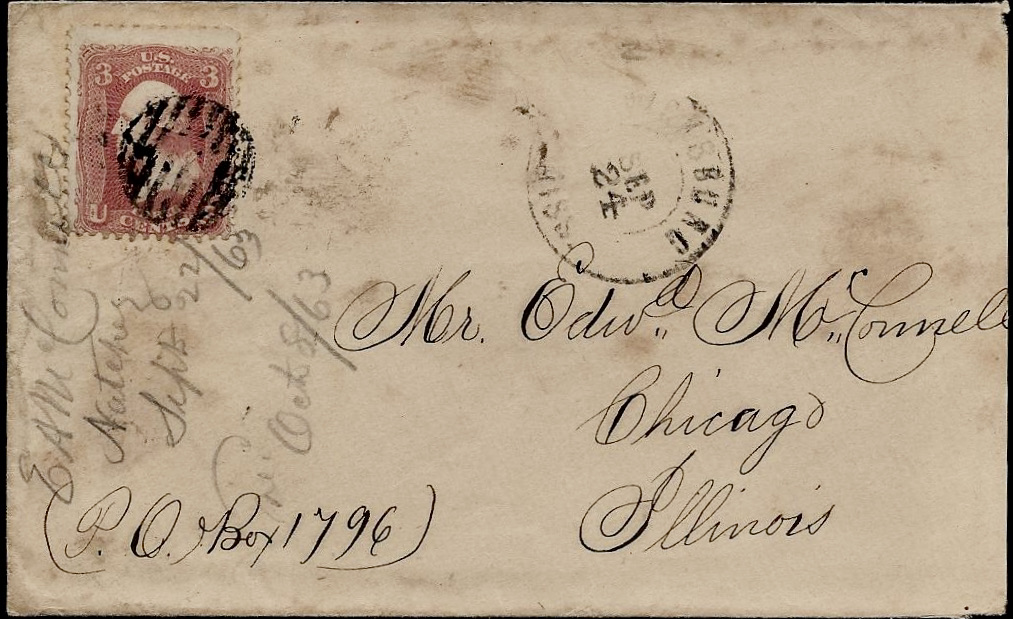 3 U.S. 3
POSTAGE
U
CENTS
SBURG
SEP
24
MISS
E A McConnell
Natchez
Sept 22/63
Oct 8/63
Mr. Edwd. McConnell
Chicago
Illinois
(P. O. Box 1796)